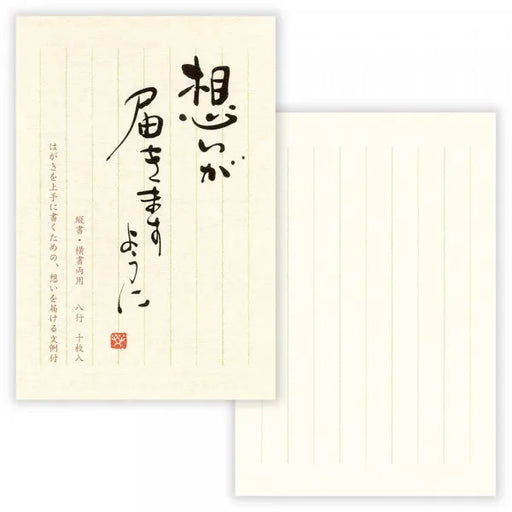 想いが
届きます
ように
縦書・横書両用　八行　十枚入
はがきを上手に書くための、想いを届ける文例付